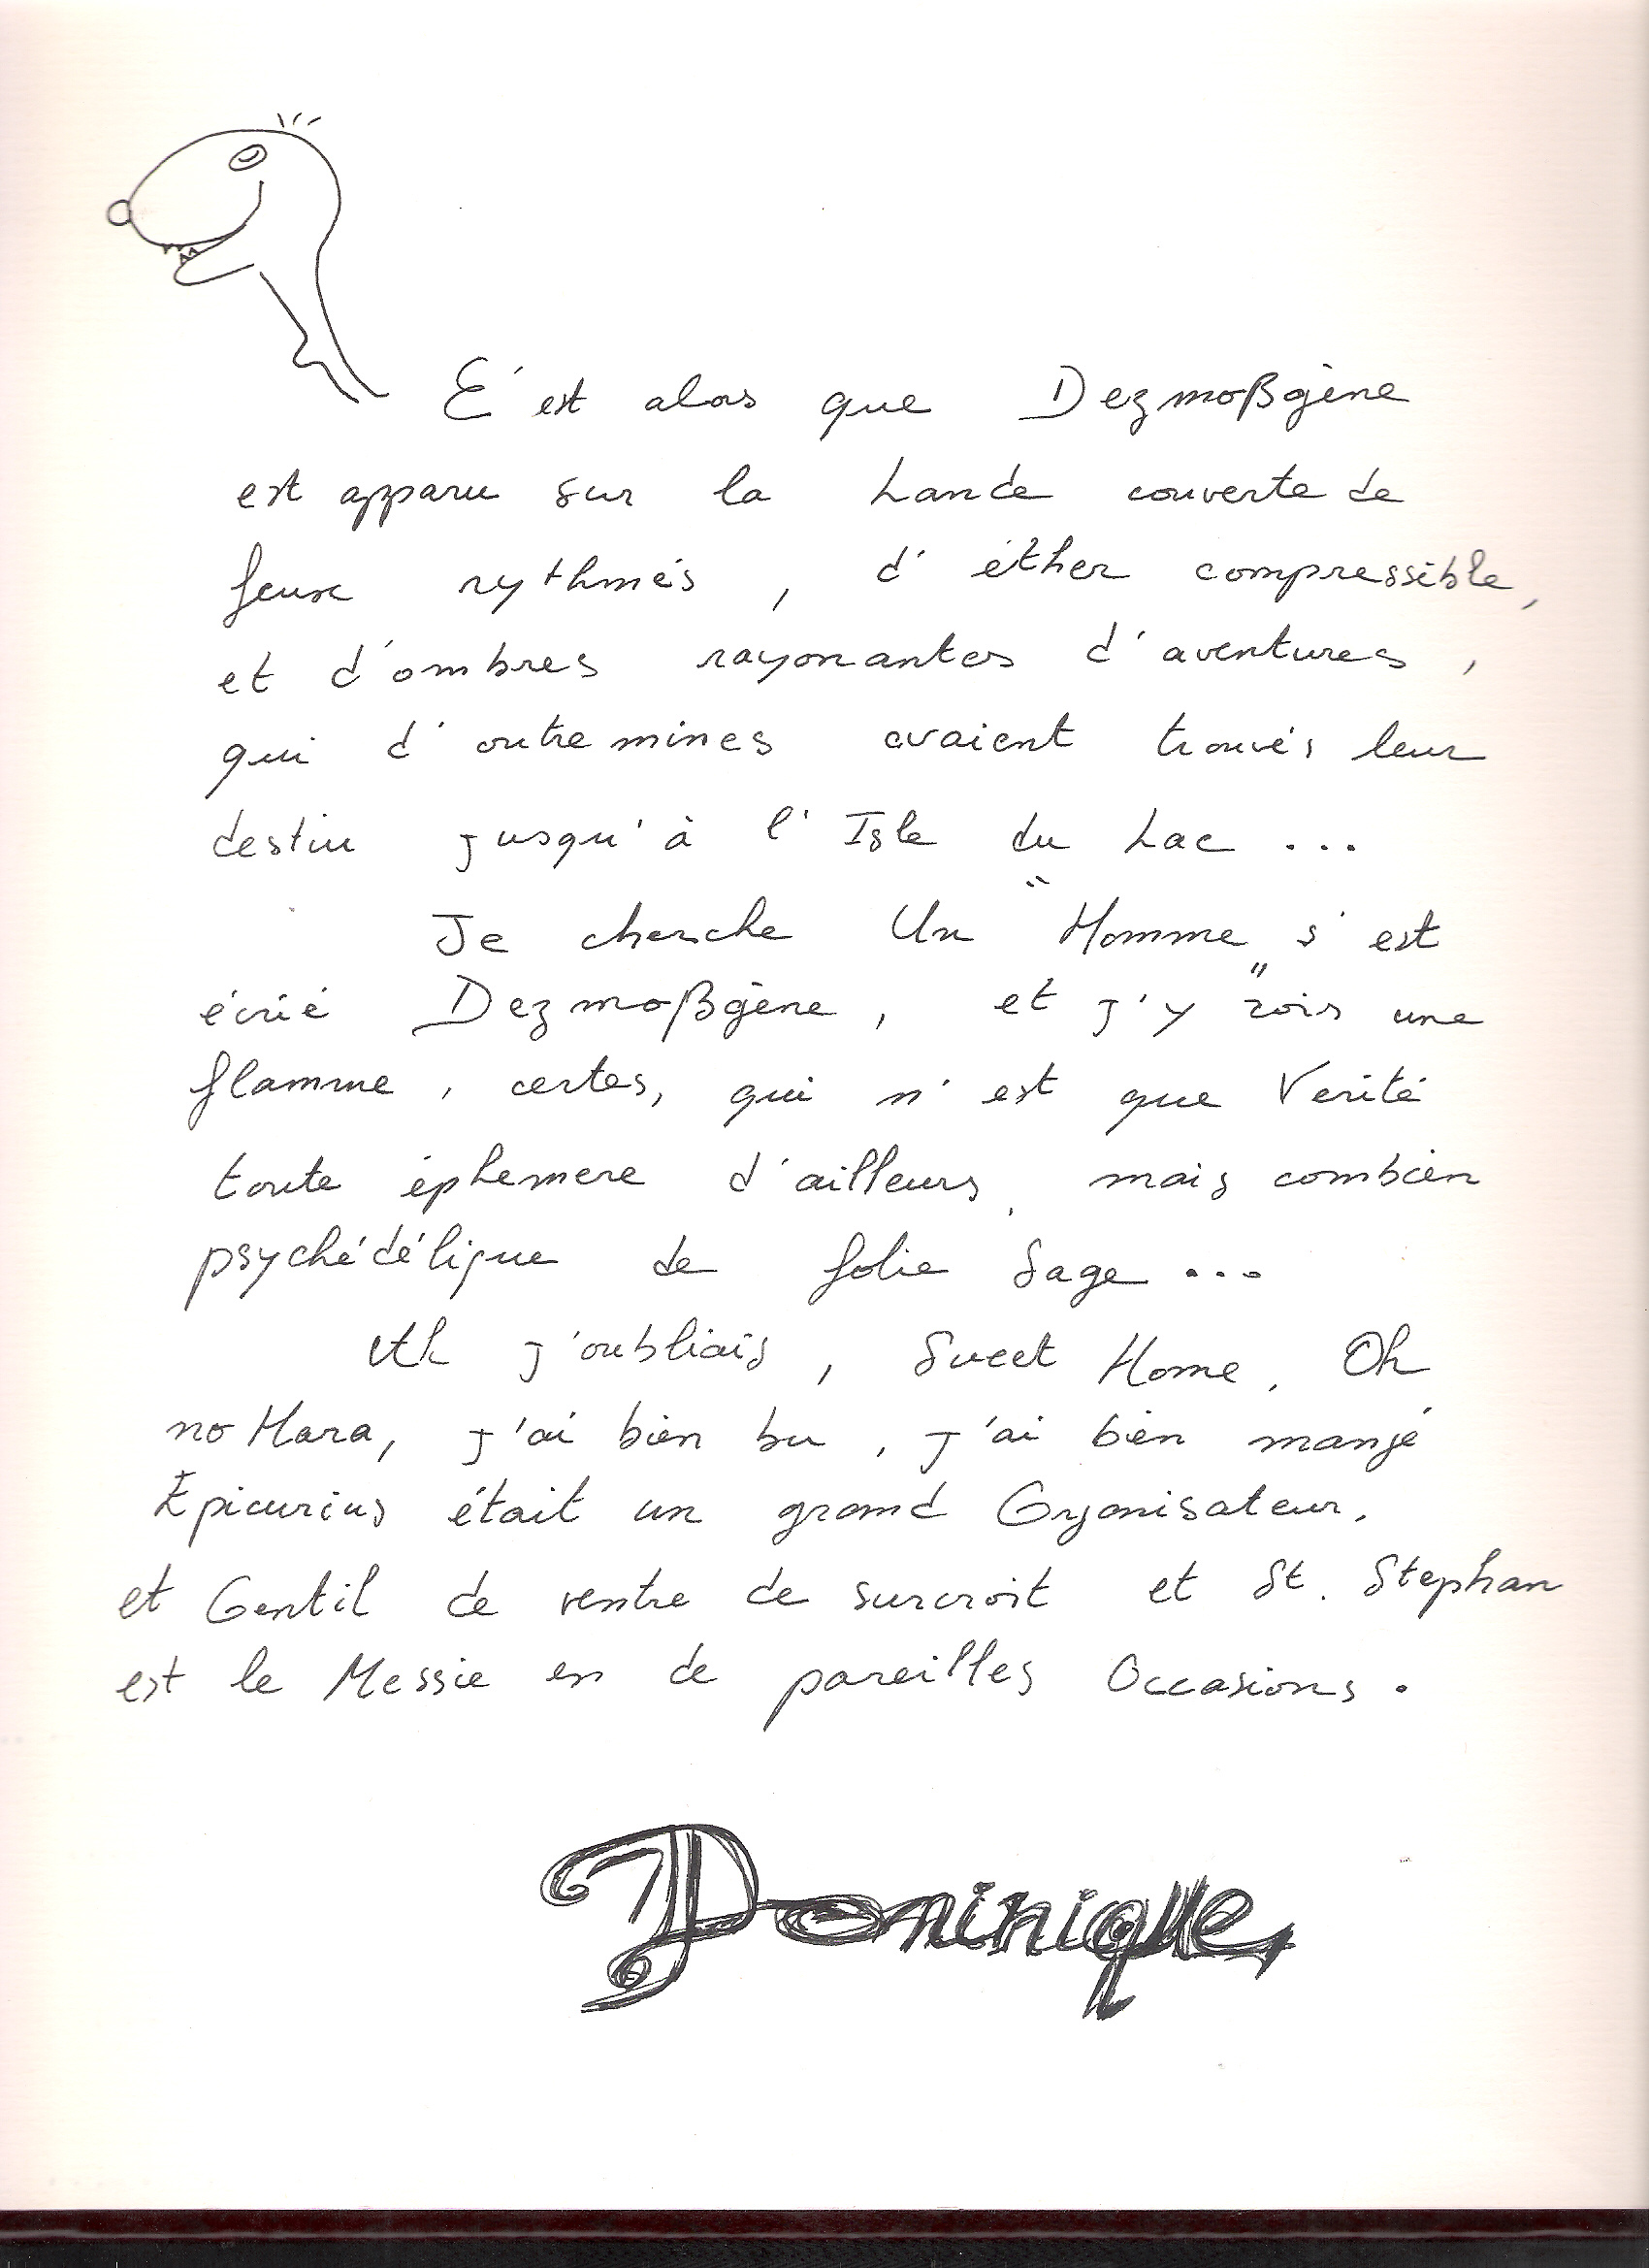 C'est alors que Dezmoßgène
est apparu sur la Lande couverte de
feux rythmés, d'éther compressible,
et d'ombres rayonantes d'aventures,
qui d'outre mines avaient trouvés leur
destin jusqu'à l'Isle du Lac ...
Je cherche Un "Homme" s'est
écrié Dezmoßgène, et j'y vois une
flamme, certes, qui n'est que Verité
toute éphemere d'ailleurs, mais combien
psychédélique de folie Sage ...
Ah j'oubliais, Sweet Home, Oh
no Mara, j'ai bien bu, j'ai bien mangé
Epicurius était un grand Organisateur,
et Gentil de ventre de surcroit et St. Stephan
est le Messie en de pareilles Occasions.
Dominique